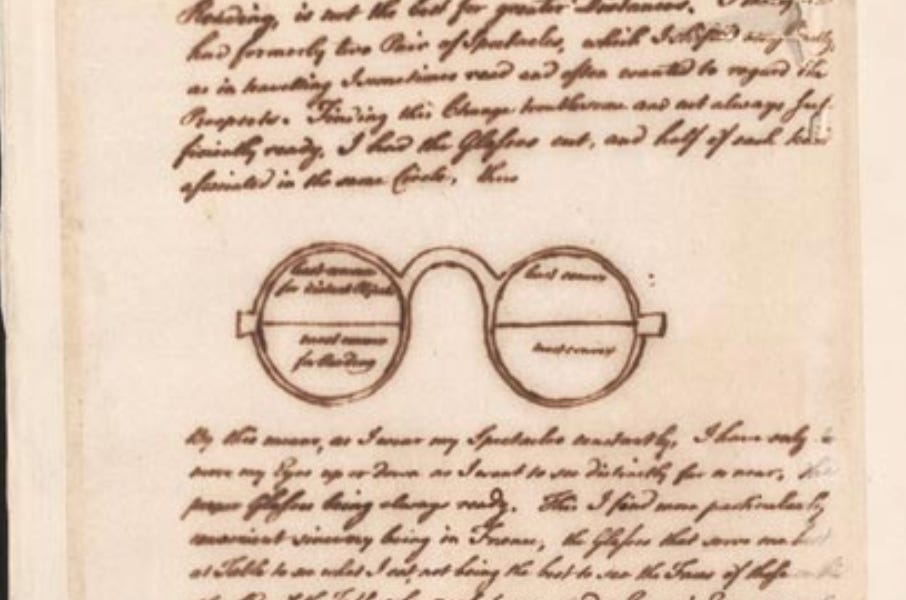 Reading, is not the best for greater Distances. I
had formerly two Pair of Spectacles, which I shifted occasionally,
as in travelling I sometimes read and often wanted to regard the
Prospects. Finding this Change troublesome and not always suf-
ficiently ready, I had the Glasses cut, and half of each kind
associated in the same Circle, thus
least convex
for distant Objects
least convex
most convex
for Reading
most convex
By this means, as I wear my Spectacles constantly, I have only to
move my Eyes up or down as I want to see distinctly far or near, the
proper Glasses being always ready. This I find more particularly
convenient since my being in France, the Glasses that serve me best
at Table to see what I eat, not being the best to see the Faces of those on the